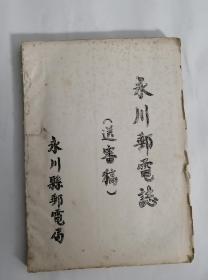 永川郵電誌
(送審稿)
永川縣郵電局